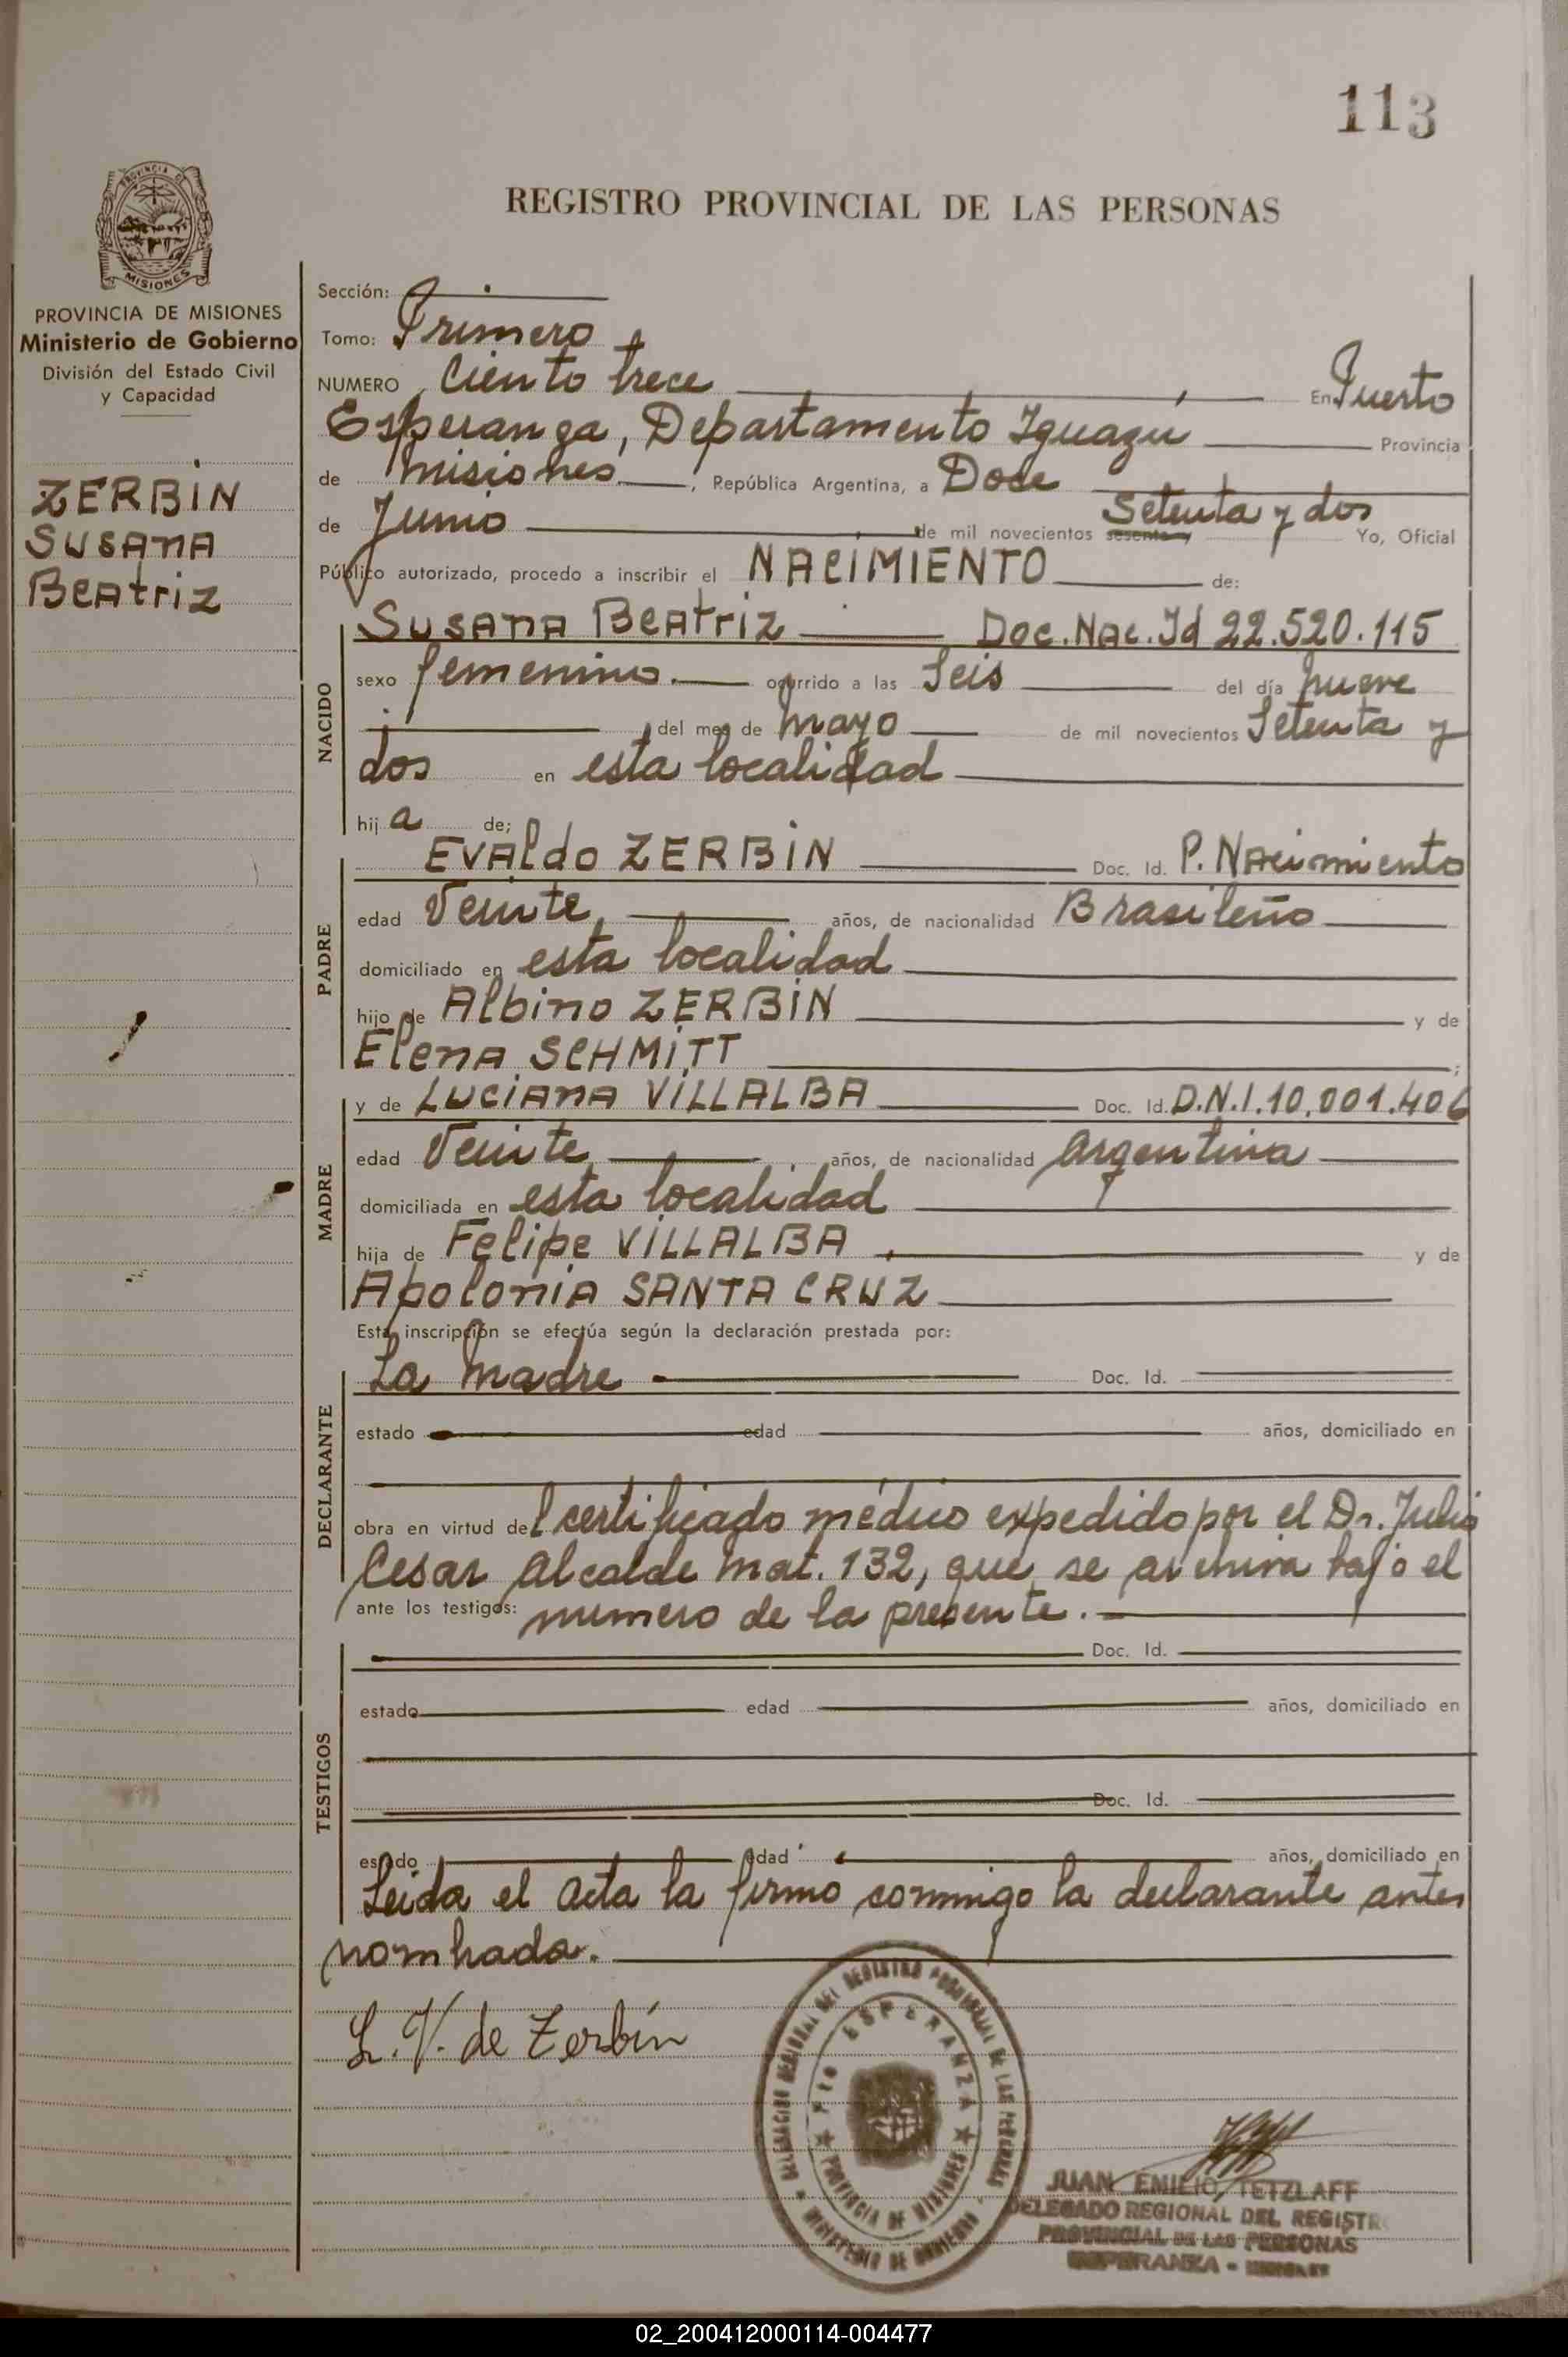 113
REGISTRO PROVINCIAL DE LAS PERSONAS
PROVINCIA DE
MISIONES
PROVINCIA DE MISIONES
Ministerio de Gobierno
División del Estado Civil
y Capacidad
ZERBIN
SUSANA
BEAtriz
Sección:
Tomo: Primero
NUMERO Ciento trece En Puerto
Esperanza, Departamento Iguazú Provincia
de Misiones, República Argentina, a Doce
de Junio de mil novecientos sesenta y Setenta y dos Yo, Oficial
Público autorizado, procedo a inscribir el NACIMIENTO de:
NACIDO
SUSANA BEAtriz Doc. Nac. Id 22.520.115
sexo femenino. ocurrido a las Seis del día nueve
del mes de mayo de mil novecientos Setenta y
dos en esta localidad
hij a de;
PADRE
EVAldo ZERBIN Doc. Id. P. NAcimiento
edad Veinte, años, de nacionalidad Brasileño
domiciliado en esta localidad
hijo de Albino ZERBIN y de
ElenA SCHMITT ;
MADRE
y de LUCIANA VILLALBA Doc. Id. D.N.I. 10.001.406
edad Veinte, años, de nacionalidad argentina
domiciliada en esta localidad
hija de Felipe VILLALBA, y de
ApoloniA SANTA CRUZ
Esta inscripción se efectúa según la declaración prestada por:
DECLARANTE
La madre Doc. Id.
estado edad años, domiciliado en
obra en virtud del certificado médico expedido por el Dr. Julio
Cesar Alcalde Mat. 132, que se archiva bajo el
ante los testigos: numero de la presente.
TESTIGOS
Doc. Id.
estado edad años, domiciliado en
Doc. Id.
estado edad años, domiciliado en
Leida el acta la firmo conmigo la declarante antes
nombrada.
L. V. de Zerbin
DELEGACION REGIONAL DEL REGISTRO PROVINCIAL DE LAS PERSONAS
Pto ESPERANZA
PROVINCIA DE MISIONES
MINISTERIO DE GOBIERNO
JUAN EMILIO TETZLAFF
DELEGADO REGIONAL DEL REGISTRO
PROVINCIAL DE LAS PERSONAS
ESPERANZA - MISIONES
02_200412000114-004477